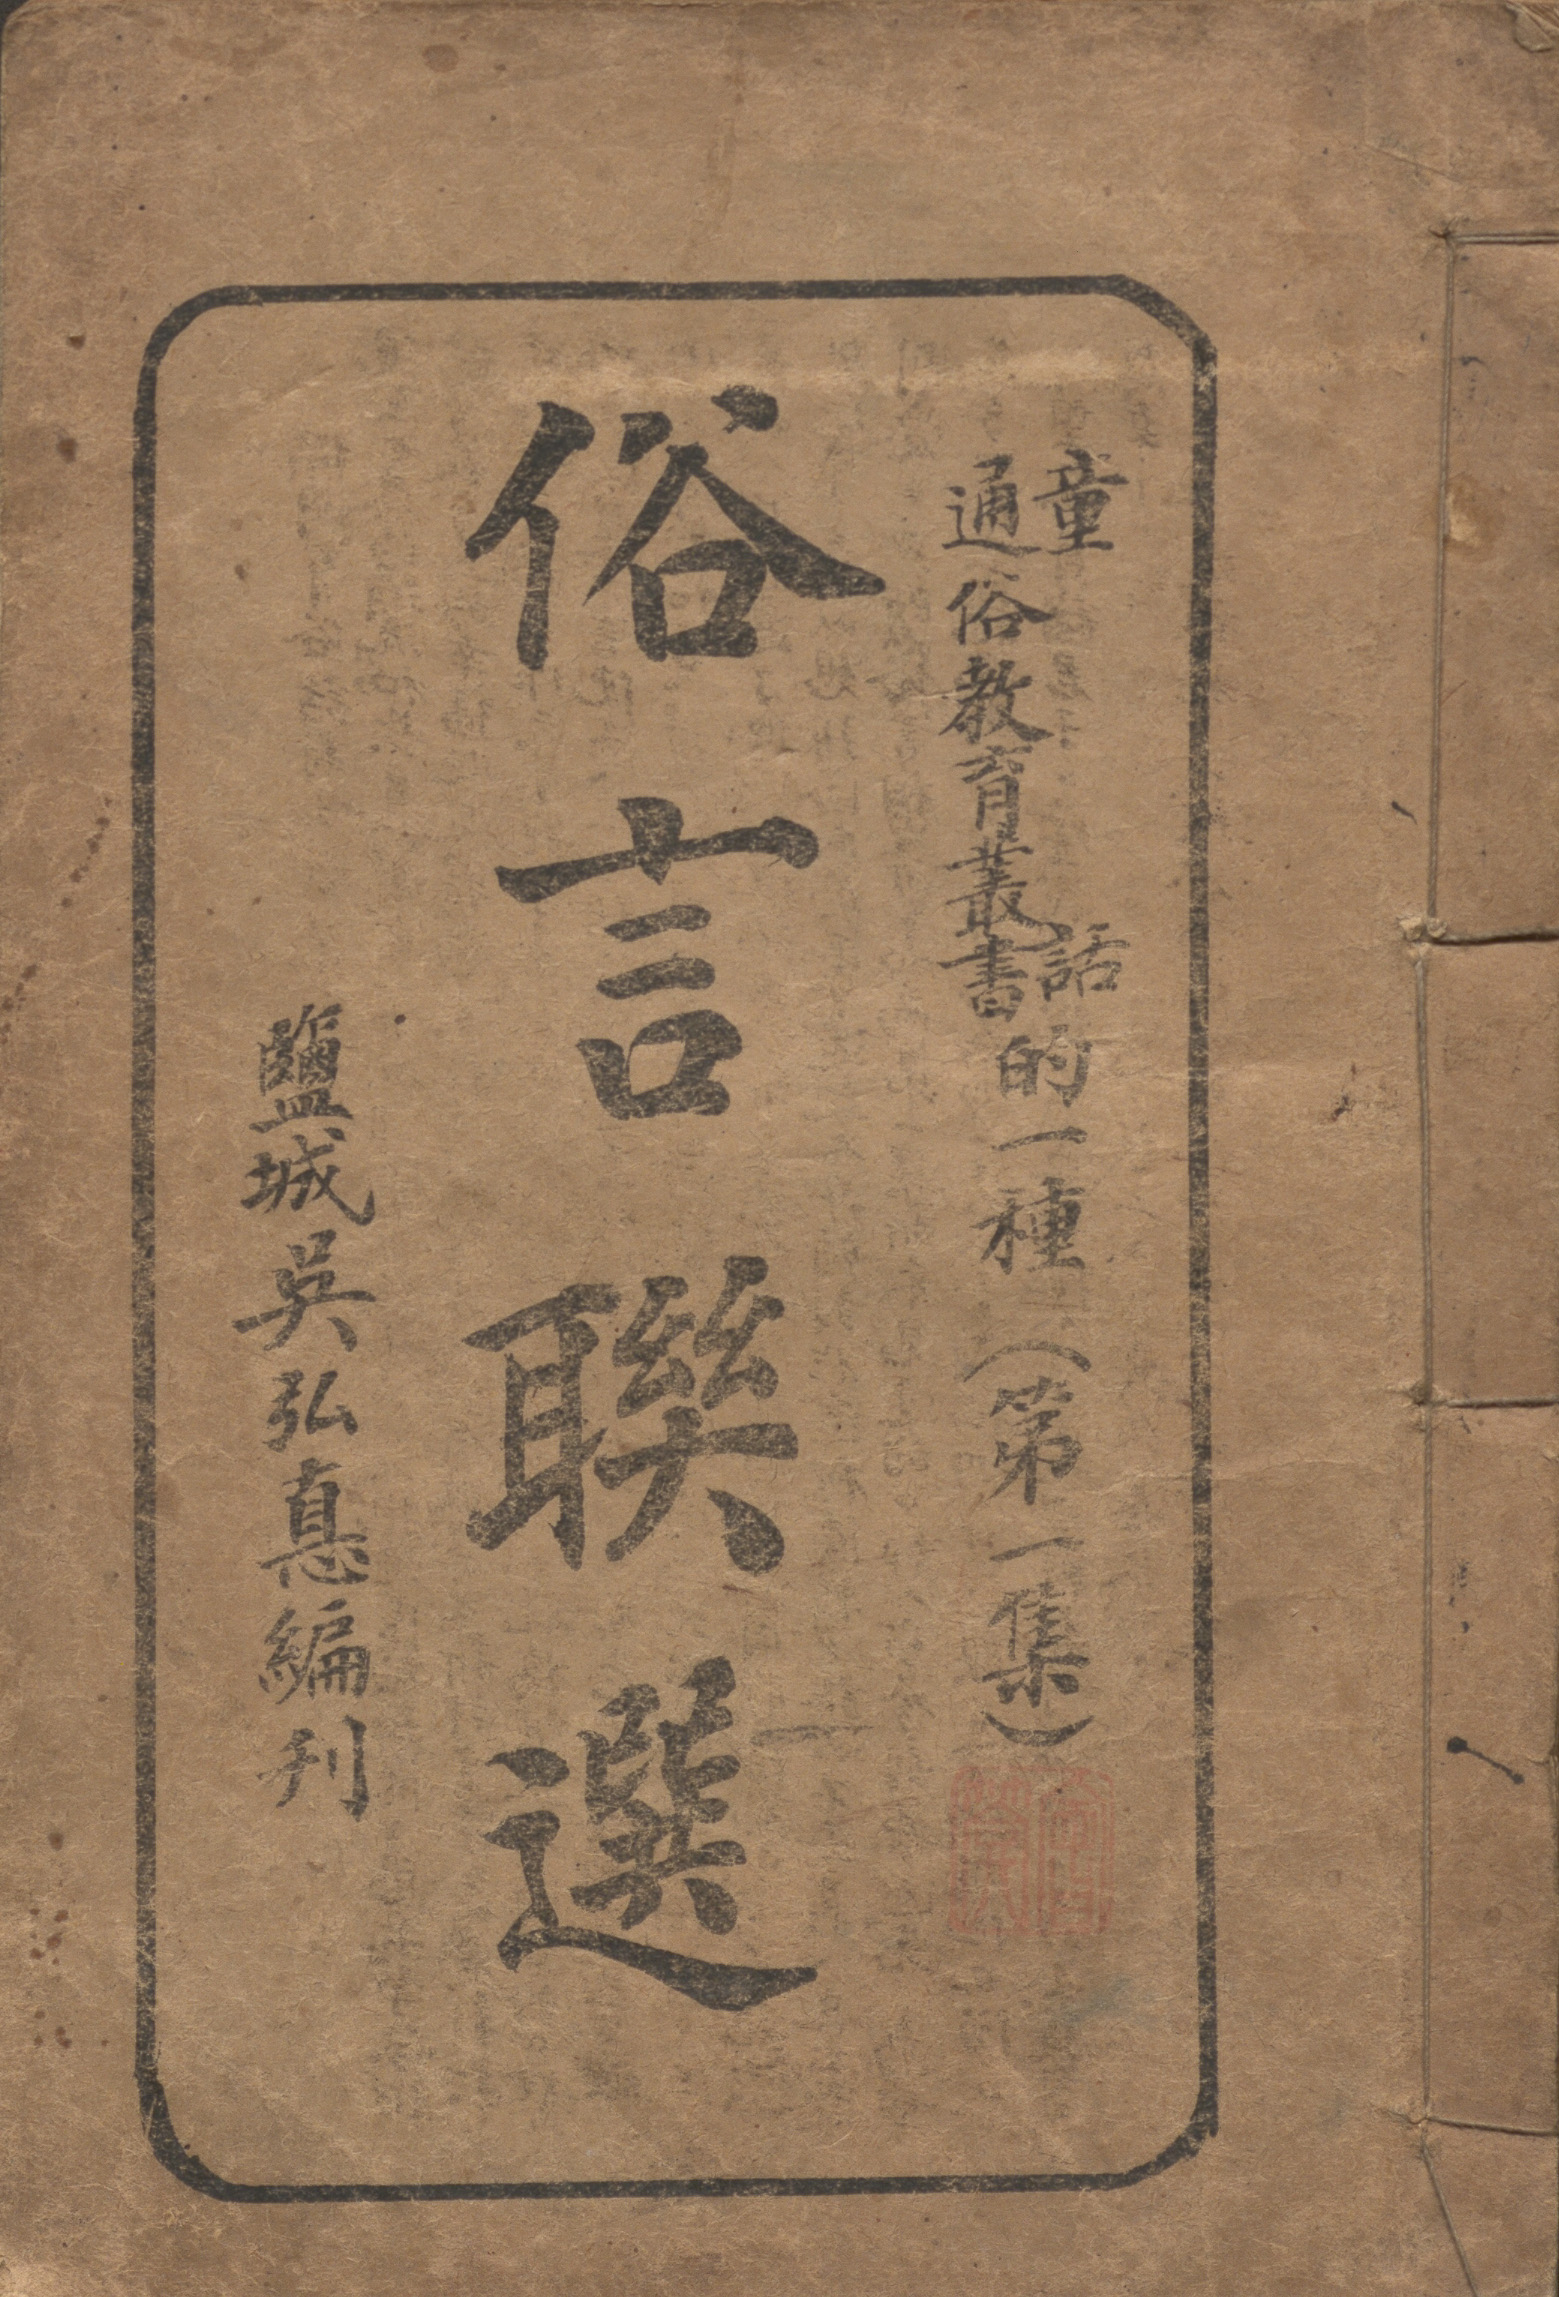 童話
通俗教育叢書
的一種（第一集）
俗言聯選
鹽城吳弘悳編刊